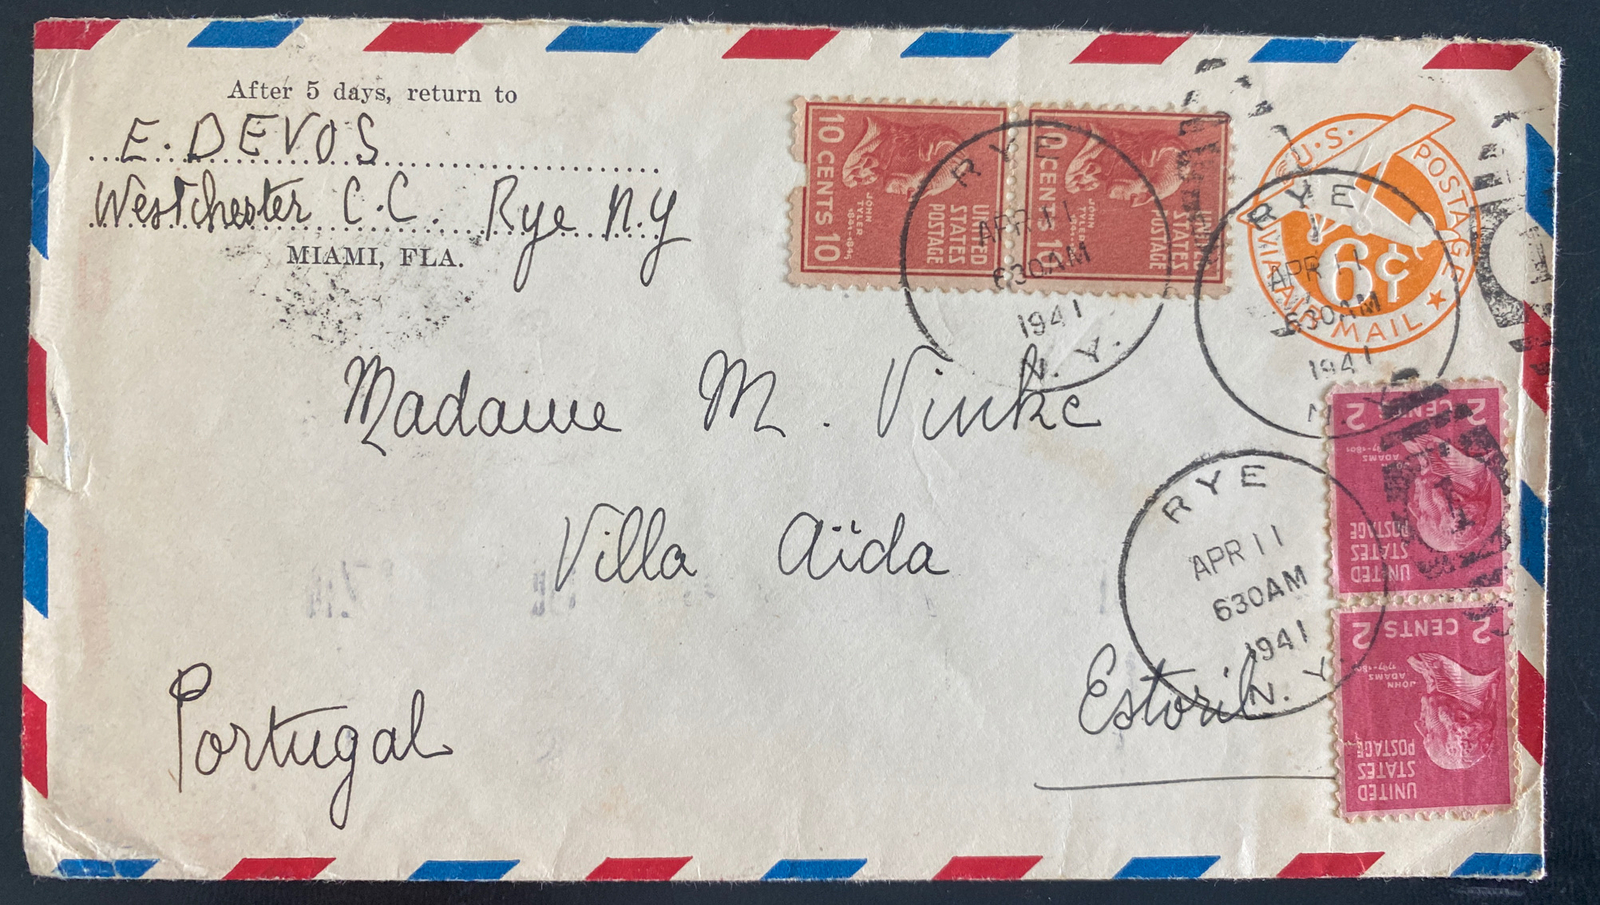 After 5 days, return to
E. DEVOS
Westchester C.C. Rye N.Y
MIAMI, FLA.
10 CENTS 10
JOHN TYLER
1841-1845
UNITED STATES POSTAGE
10 CENTS 10
JOHN TYLER
1841-
UNITED STATES POSTAGE
RYE
APR 11
630AM
1941
N. Y.
U.S. POSTAGE
VIA AIR MAIL
6¢
RYE
APR 11
630AM
1941
N. Y.
Madame M. Vinke
Villa Aïda
Estoril
Portugal
RYE
APR 11
630AM
1941
N. Y.
2 CENTS 2
JOHN ADAMS
1797-1801
UNITED STATES POSTAGE
2 CENTS 2
JOHN ADAMS
1797-180
UNITED STATES POSTAGE